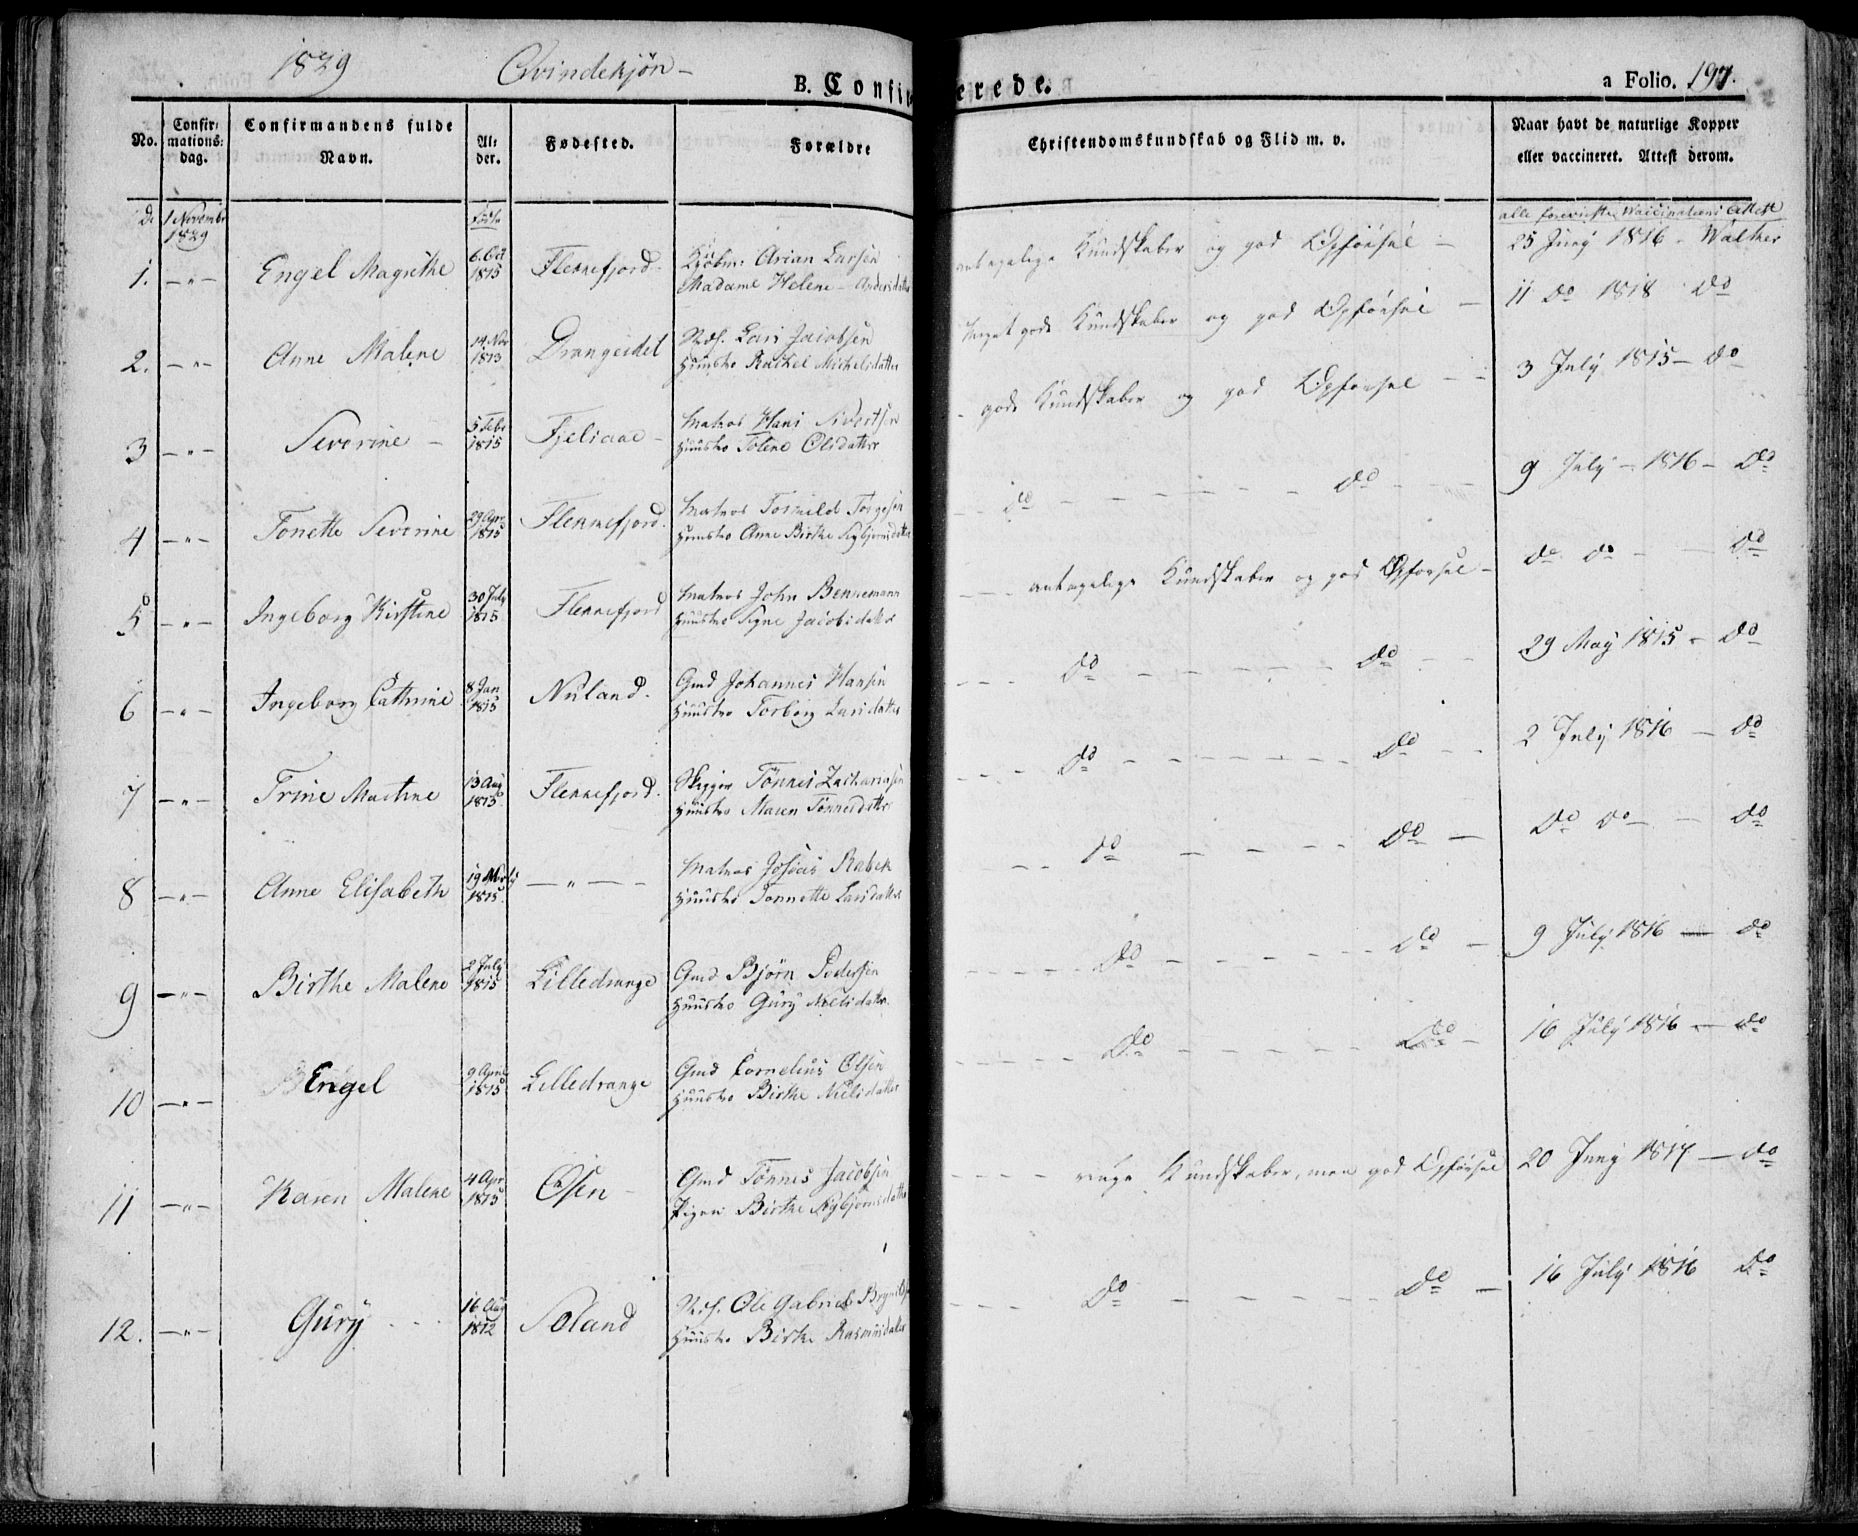 1829 Qvindekjön-
B. Confirmerede.
a Folio. 197.
No. Confirmations: dag. Confirmandens fulde Navn. Alder. Fødested. Forældre Christendomskundskab og Flid m. v. Naar havt de naturlige Kopper eller vaccineret. Attest derom.
1 Novembr 1829
1. -"- Engel Magrethe 6. Oct 1815 Flekkefjord. Kjöbm: Arian Larsen
Madame Helene Andersdatter
antagelige Kundskaber og god Opförsel - 25 Juny 1816 - Walther
2. -"- Anne Malene 14 Nov 1813 Drangeidet Huusf. Lars Jacobsen
Huustro Rachel Michelsdatter
meget gode Kundskaber og god Opförsel - 11 do 1818 do
3 -"- Severine - 5 Febr 1815 Fjelsaae - Matros Hans Sivertsen
Huustro Tolene Olsdatter
gode Kundskaber og god Opförsel - 3 July 1815 - do
4 -"- Tonette Severine 29 Apr 1815 Flekkefjord. Matros Tormild Torgesen
Huustro Anne Birthe Sigbjörnsdatter
do - - - do - - 9 July - 1816 - do
5 -"- Ingeborg Kirstine 30 July 1815 Flekkefjord Matros John Bennemann
Huustro Signe Jacobsdatter
antagelige Kundskaber og god Opförsel - do do - - do
6 -"- Ingeborg Cathrine 8 Jan 1815 Nuland. Gmd Johannes Hansen
Huustro Torborg Larsdatter
do - - - do - - 29 May 1815 - do
7 -"- Trine Martine 13 Aug 1815 Flekkefjord. Skipper Tönnes Zachariasen
Huustro Maren Tönnesdatter
do - - - do - - 2 July 1816 - do
8 -"- Anne Elisabeth 19 1815 -"- Matros Josias Rabek
Huustro Tonnette Larsdatter
do - - - do - do do - - do
9 -"- Birthe Malene 2 July 1815 Lilledrange Gmd Björn Pedersen
Huustro Gury Nielsdatter
do - - - do - 9 July 1816 - do
10 -"- Engel 9 April 1815 Lilledrange Gmd Cornelius Olsen
Huustro Birthe Nielsdatter
do - - - do - 16 July 1816 - do
11 -"- Karen Malene 4 Apr 1815 Osen - Gmd Tönnes Jacobsen
Pigen Birthe Sigbjörnsdatter
ringe Kundskaber, men god Opförsel 20 Juny 1817 - do
12. -"- Gury 16 Aug 1812 Soland Huusf. Ole Gabriel
Huustro Birthe Rasmusdatter
do - - - do - 16 July 1816 do